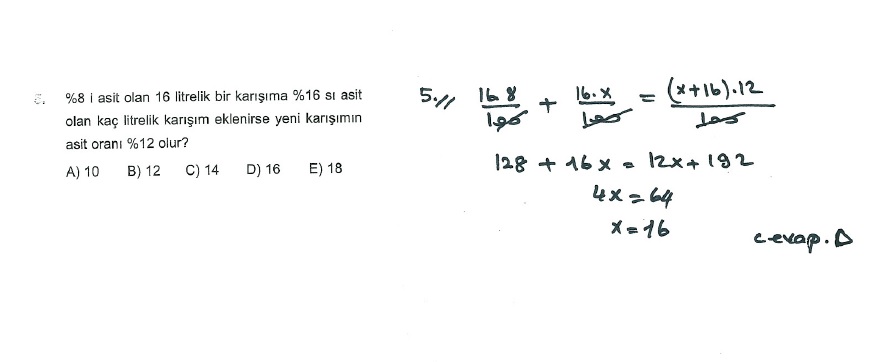 5. %8 i asit olan 16 litrelik bir karışıma %16 sı asit
olan kaç litrelik karışım eklenirse yeni karışımın
asit oranı %12 olur?
A) 10 B) 12 C) 14 D) 16 E) 18
5.// 16.8/100 + 16.x/100 = (x+16).12/100
128 + 16x = 12x + 192
4x = 64
x = 16
cevap. D